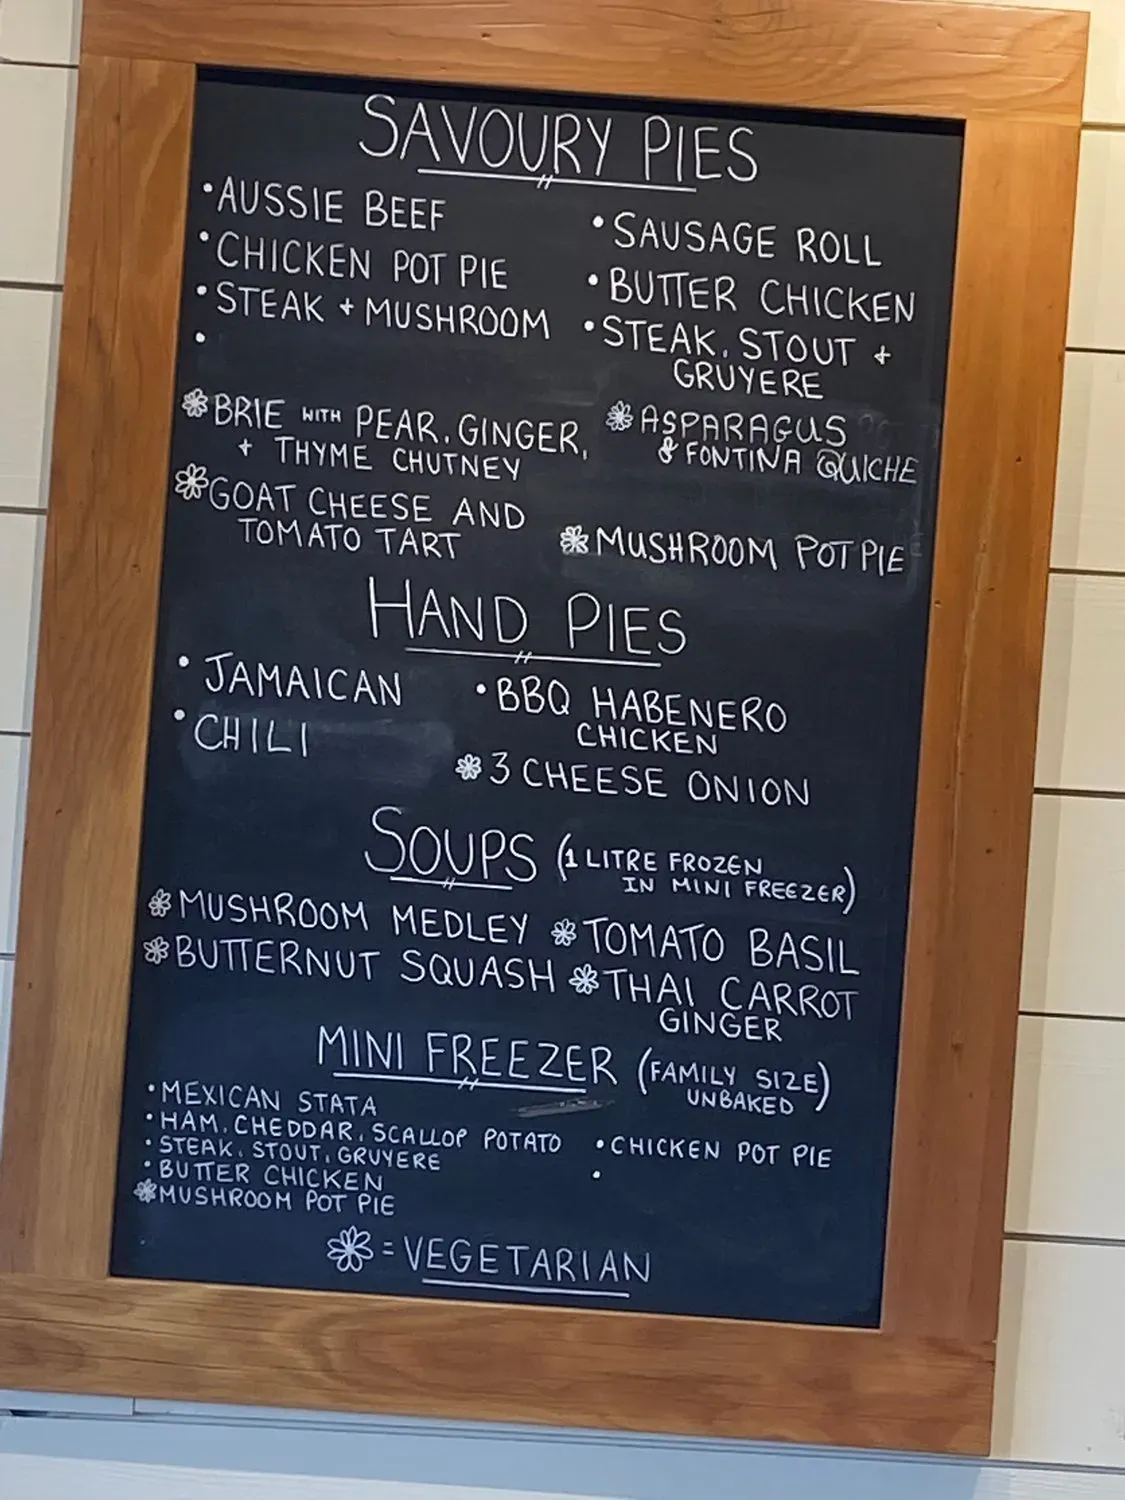 SAVOURY PIES
• AUSSIE BEEF
• CHICKEN POT PIE
• STEAK + MUSHROOM
•
❀ BRIE WITH PEAR, GINGER,
+ THYME CHUTNEY
❀ GOAT CHEESE AND
TOMATO TART
• SAUSAGE ROLL
• BUTTER CHICKEN
• STEAK, STOUT +
GRUYERE
❀ ASPARAGUS
& FONTINA QUICHE
❀ MUSHROOM POT PIE
HAND PIES
• JAMAICAN
• CHILI
• BBQ HABENERO
CHICKEN
❀ 3 CHEESE ONION
SOUPS (1 LITRE FROZEN
IN MINI FREEZER)
❀ MUSHROOM MEDLEY
❀ BUTTERNUT SQUASH
❀ TOMATO BASIL
❀ THAI CARROT
GINGER
MINI FREEZER (FAMILY SIZE)
UNBAKED
• MEXICAN STATA
• HAM, CHEDDAR, SCALLOP POTATO
• STEAK, STOUT, GRUYERE
• BUTTER CHICKEN
❀ MUSHROOM POT PIE
• CHICKEN POT PIE
•
❀ = VEGETARIAN